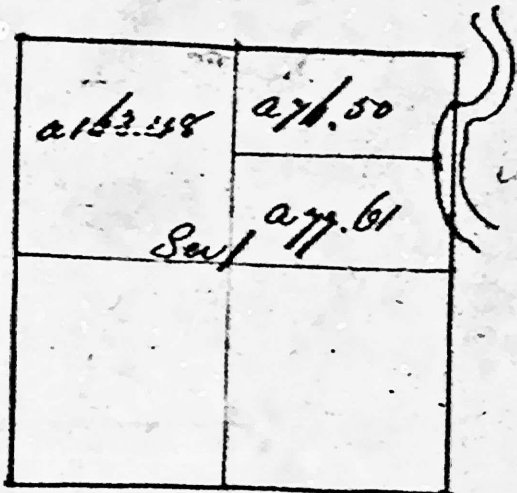 a 163.48
a 76.50
a 77.61
Sec 1